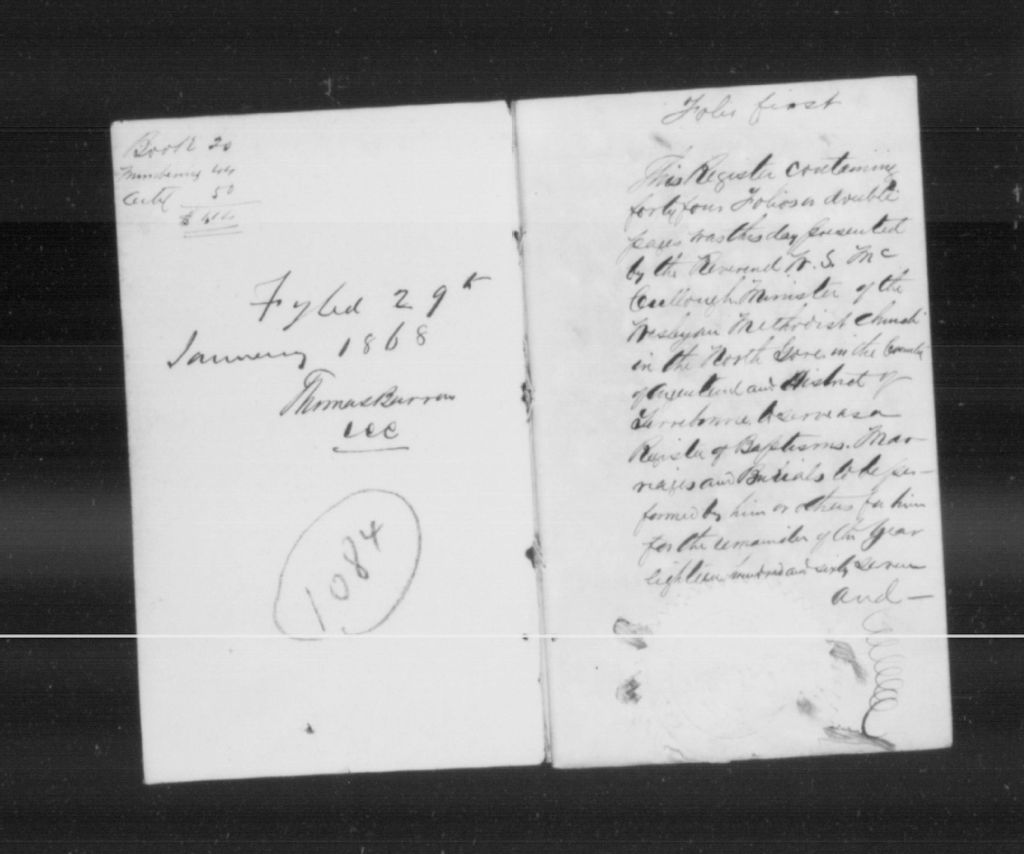 Book 20
Numbering 44
Certif 50
Fyled 29th
January 1868
Thomas Barron
CCC
1084
Folio first
This Register containing
forty four Folios or double
pages was this day presented
by the Reverend W. S. Mc
Cullough Minister of the
Wesleyan Methodist Church
in the North Gore in the County
of Argenteuil and District of
Terrebonne to serve as a
Register of Baptisms. Mar-
riages and Burials to be per-
formed by him or others for him
for the remainder of the Year
eighteen hundred and sixty seven
and —